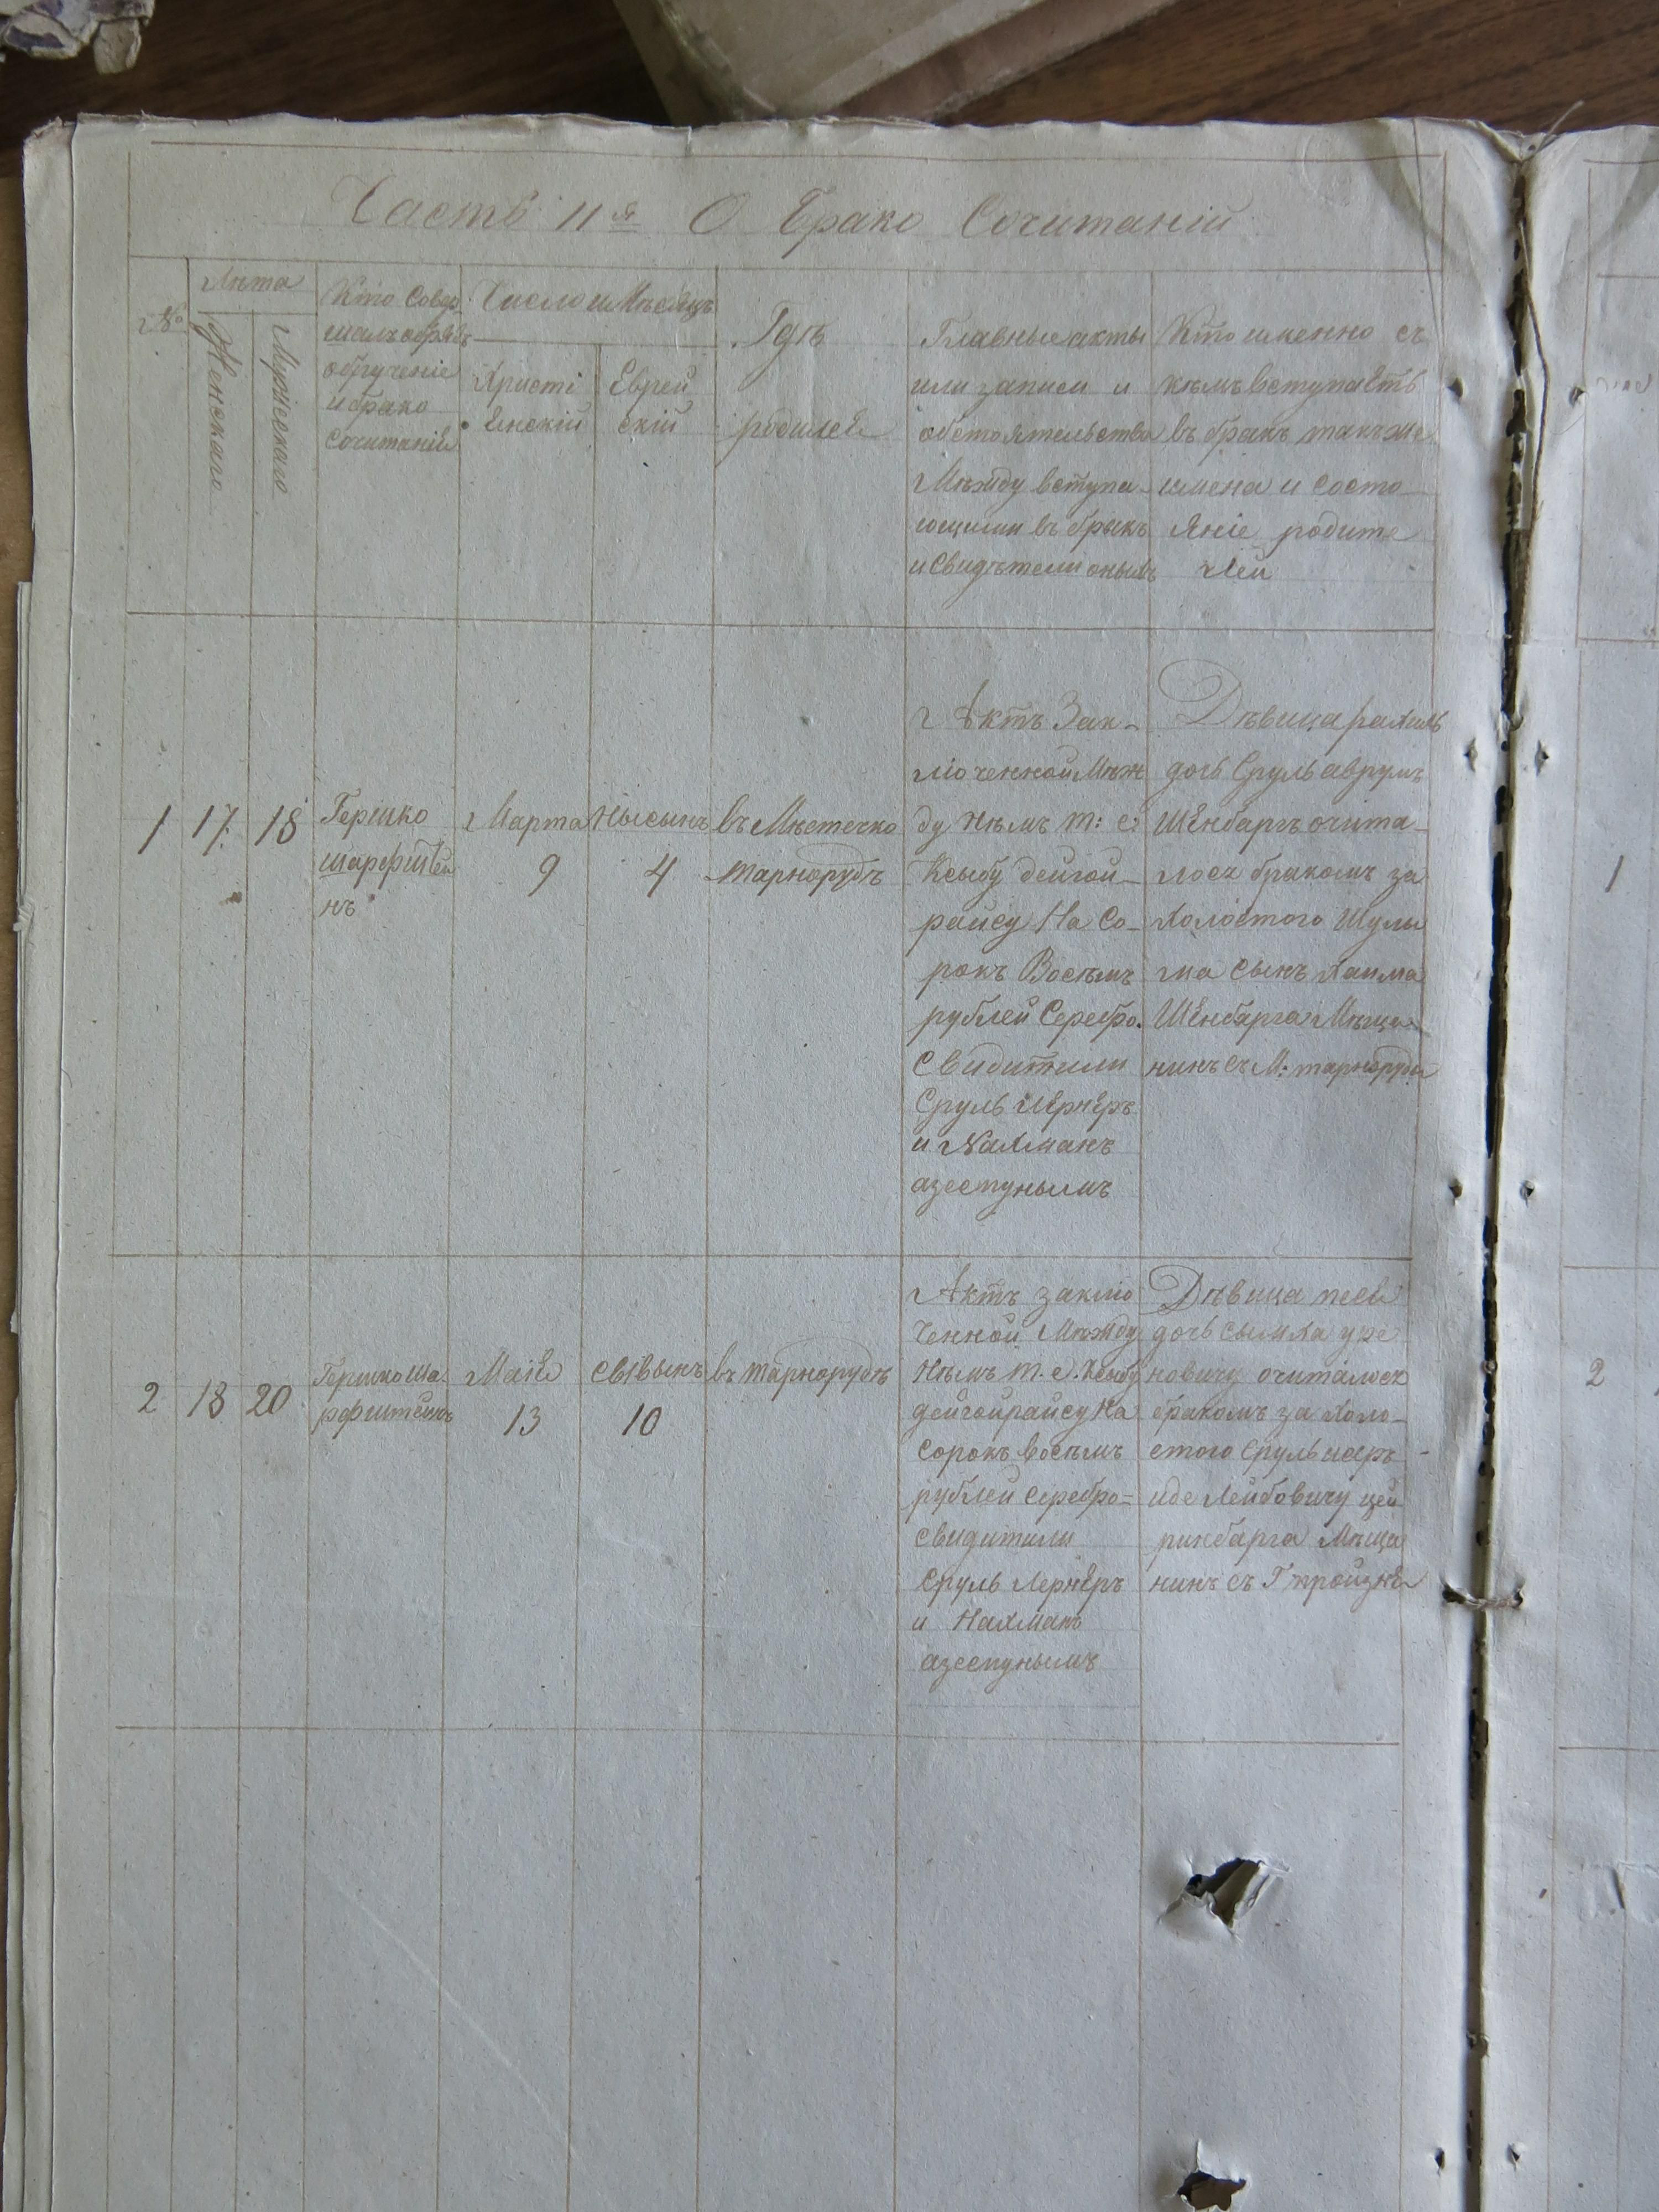 Часть IIя О Брако Сочитаній
№
Лѣта
Женскаго
Мужескаго
Кто Совер
шалъ обрядъ
обрученіе
и брако
сочитаніи
Число и Мѣсяцъ
Христі
янскій
Еврей
скій
Гдѣ
родился
Главные акты
или записи и
обстоятельства
Мѣжду вступа
ющими въ бракъ
и Свидѣтели онымъ
Кто именно съ
кѣмъ вступаетъ
въ бракъ такъже
имена и состо
яніе родите
лей
1
17
18
Гершко
шарфштей
нъ
Марта
9
Нысынъ
4
въ Мѣстечко
тарнорудѣ
Актъ Зак
люченной Мѣж
ду Нѣмъ т: е:
Ксыбу дейгой
райсу На Со
рокъ Восѣмъ
рублей Серебро.
Свидители
Сруль Лернеръ
и Нахманъ
азестунымъ
Дѣвица рахиль
дочь Сруль аврумъ
Шенбаргъ очита
лося бракомъ за
Холостого Шулы
ма сынъ Хаима
Шенбарга Мѣща
нинъ съ М: тарноруды
2
18
20
Гершко ша
рфштейнъ
Маія
13
Свывынъ
10
въ тарнорудѣ
Актъ заклю
ченной Мѣжду
Нѣмъ т. е. Ксыбу
дейгойрайсу На
Сорокъ восѣмъ
рублей серебро
свидители
Сруль Лернеръ
и Нахманъ
азестунымъ
Дѣвица песи
дочь Сымха
очиталося
бракомъ за холо
стого Сруль
иде Лейбовичу цей
ринбарга Мѣща
нинъ съ Г
1
2